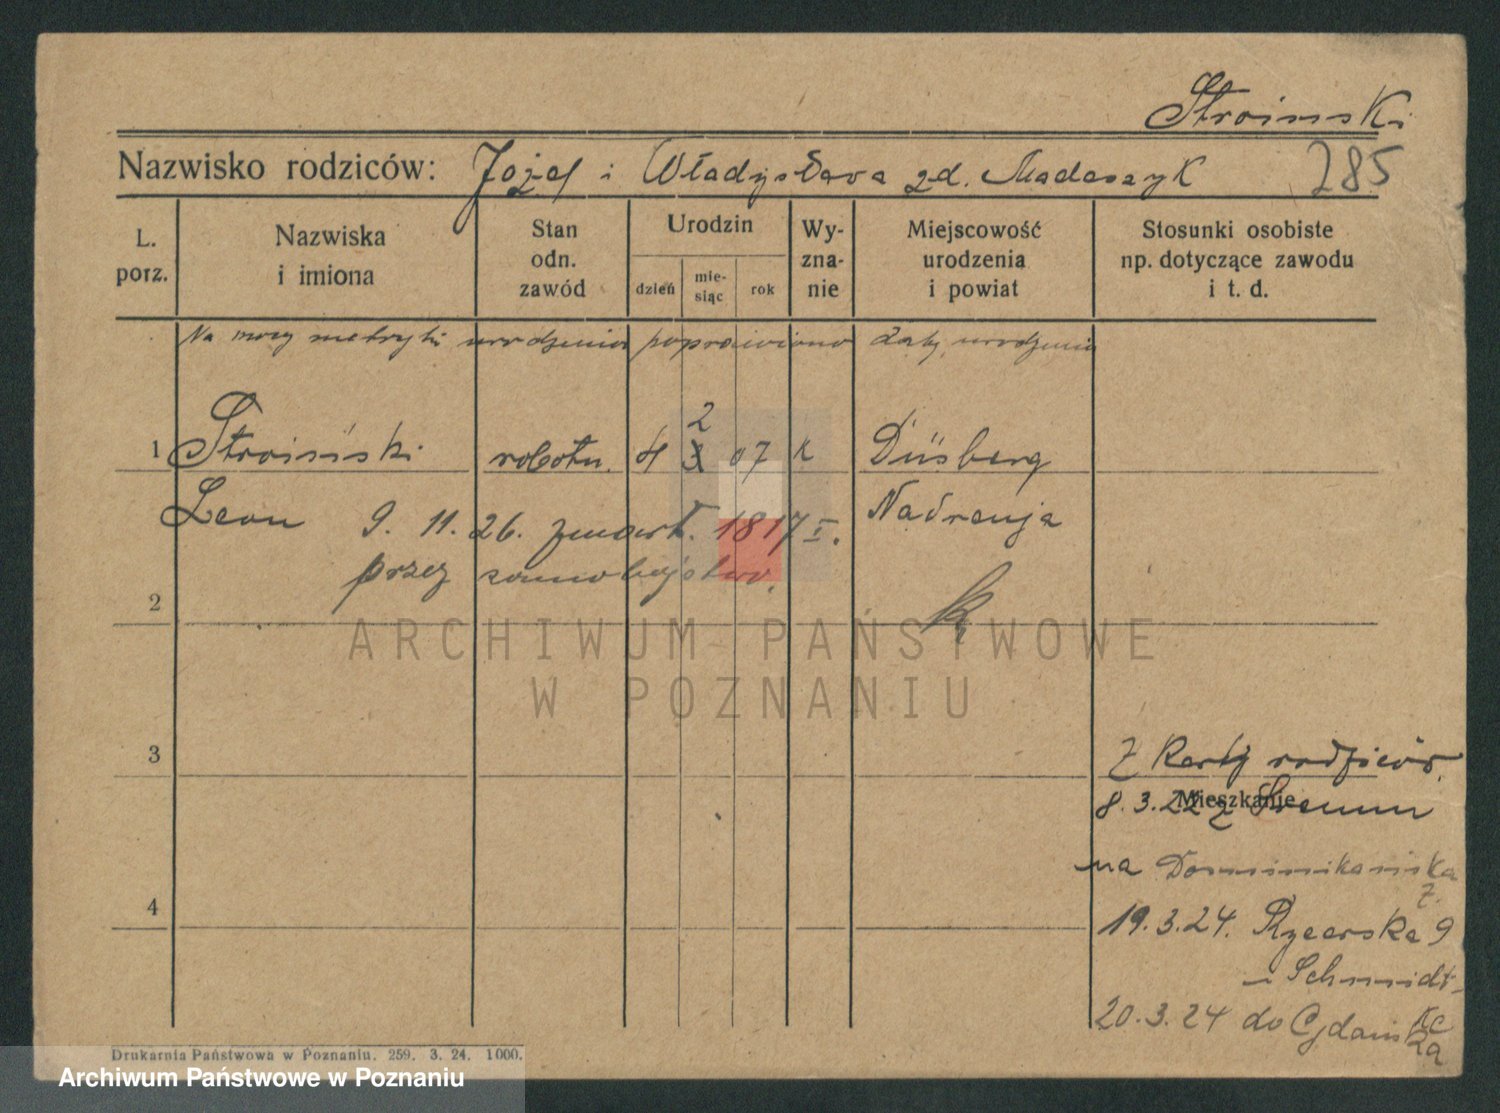 Stroinski
Nazwisko rodziców: Józef i Władysława zd. Madaszyk 285
L. porz.
Nazwiska i imiona
Stan odn. zawód
Urodzin
dzień
mie-siąc
rok
Wy-zna-nie
Miejscowość urodzenia i powiat
Stosunki osobiste np. dotyczące zawodu i t. d.
Na mocy metryki urodzenia poprawiono datę urodzenia
2
1 Stroiński robotn. 4 3 07 k Düsberg
Leon 9. 11. 26. zmarł. 1817 I. Nadrenja
przez samobójstwo.
2
ARCHIWUM PAŃSTWOWE
W POZNANIU
3
Z karty rodziców.
Mieszkanie
8.3.22 z Śremu
na Dominikańska 7.
4
19.3.24. Rycerska 9
Schmidt
20.3.24 do Gdańska
Drukarnia Państwowa w Poznaniu. 259. 3. 24. 1000.
Archiwum Państwowe w Poznaniu